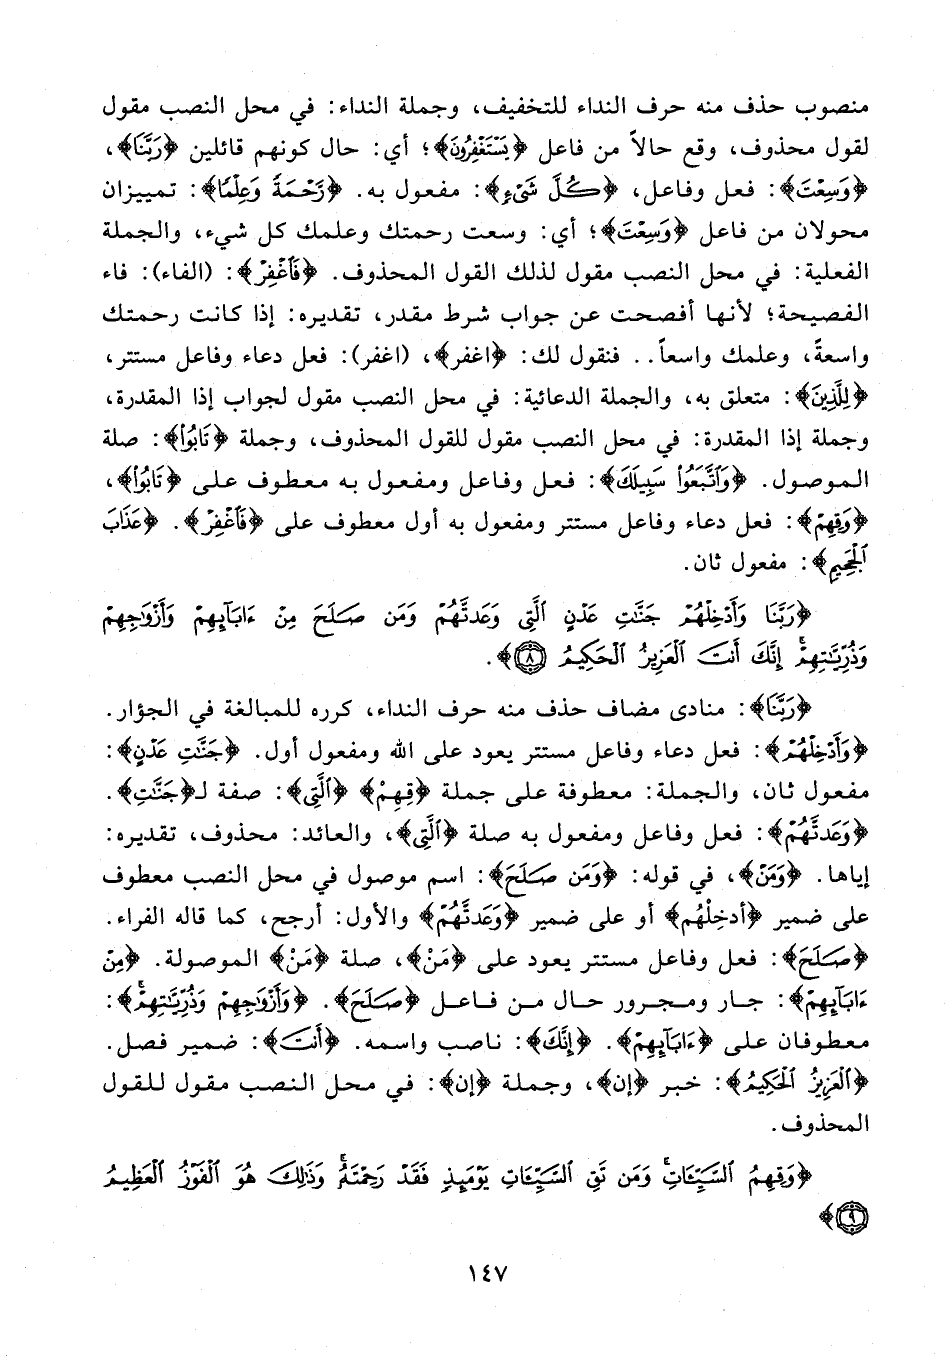 منصوب حذف منه حرف النداء للتخفيف، وجملة النداء: في محل النصب مقول
لقول محذوف، وقع حالاً من فاعل ﴿يَسْتَغْفِرُونَ﴾؛ أي: حال كونهم قائلين ﴿رَبَّنَا﴾،
﴿وَسِعْتَ﴾: فعل وفاعل، ﴿كُلَّ شَىْءٍ﴾: مفعول به. ﴿رَّحْمَةً وَعِلْمًا﴾: تمييزان
محولان من فاعل ﴿وَسِعْتَ﴾؛ أي: وسعت رحمتك وعلمك كل شيء، والجملة
الفعلية: في محل النصب مقول لذلك القول المحذوف. ﴿فَٱغْفِرْ﴾: (الفاء): فاء
الفصيحة؛ لأنها أفصحت عن جواب شرط مقدر، تقديره: إذا كانت رحمتك
واسعةً، وعلمك واسعاً.. فنقول لك: ﴿اغفر﴾، (اغفر): فعل دعاء وفاعل مستتر،
﴿لِلَّذِينَ﴾: متعلق به، والجملة الدعائية: في محل النصب مقول لجواب إذا المقدرة،
وجملة إذا المقدرة: في محل النصب مقول للقول المحذوف، وجملة ﴿تَابُوا۟﴾: صلة
الموصول. ﴿وَٱتَّبَعُوا۟ سَبِيلَكَ﴾: فعل وفاعل ومفعول به معطوف على ﴿تَابُوا۟﴾،
﴿وَقِهِمْ﴾: فعل دعاء وفاعل مستتر ومفعول به أول معطوف على ﴿فَٱغْفِرْ﴾. ﴿عَذَابَ
ٱلْجَحِيمِ﴾: مفعول ثان.
﴿رَبَّنَا وَأَدْخِلْهُمْ جَنَّـٰتِ عَدْنٍ ٱلَّتِى وَعَدتَّهُمْ وَمَن صَـلَحَ مِنْ ءَابَآئِهِمْ وَأَزْوَٰجِهِمْ
وَذُرِّيَّـٰتِهِمْ ۚ إِنَّكَ أَنتَ ٱلْعَزِيزُ ٱلْحَكِيمُ ٨﴾.
﴿رَبَّنَا﴾: منادى مضاف حذف منه حرف النداء، كرره للمبالغة في الجؤار.
﴿وَأَدْخِلْهُمْ﴾: فعل دعاء وفاعل مستتر يعود على الله ومفعول أول. ﴿جَنَّـٰتِ عَدْنٍ﴾:
مفعول ثان، والجملة: معطوفة على جملة ﴿قِهِمْ﴾ ﴿ٱلَّتِى﴾: صفة لـ﴿جَنَّـٰتِ﴾.
﴿وَعَدتَّهُمْ﴾: فعل وفاعل ومفعول به صلة ﴿ٱلَّتِى﴾، والعائد: محذوف، تقديره:
إياها. ﴿وَمَنْ﴾، في قوله: ﴿وَمَن صَـلَحَ﴾: اسم موصول في محل النصب معطوف
على ضمير ﴿أدخِلْهُم﴾ أو على ضمير ﴿وَعَدتَّهُمْ﴾ والأول: أرجح، كما قاله الفراء.
﴿صَـلَحَ﴾: فعل وفاعل مستتر يعود على ﴿مَنْ﴾، صلة ﴿مَنْ﴾ الموصولة. ﴿مِنْ
ءَابَآئِهِمْ﴾: جار ومجرور حال من فاعل ﴿صَـلَحَ﴾. ﴿وَأَزْوَٰجِهِمْ وَذُرِّيَّـٰتِهِمْ ۚ﴾:
معطوفان على ﴿ءَابَآئِهِمْ﴾. ﴿إِنَّكَ﴾: ناصب واسمه. ﴿أَنتَ﴾: ضمير فصل.
﴿ٱلْعَزِيزُ ٱلْحَكِيمُ﴾: خبر ﴿إن﴾، وجملة ﴿إن﴾: في محل النصب مقول للقول
المحذوف.
﴿وَقِهِمُ ٱلسَّيِّـَٔاتِ ۚ وَمَن تَقِ ٱلسَّيِّـَٔاتِ يَوْمَئِذٍ فَقَدْ رَحِمْتَهُۥ ۚ وَذَٰلِكَ هُوَ ٱلْفَوْزُ ٱلْعَظِيمُ
٩﴾
١٤٧